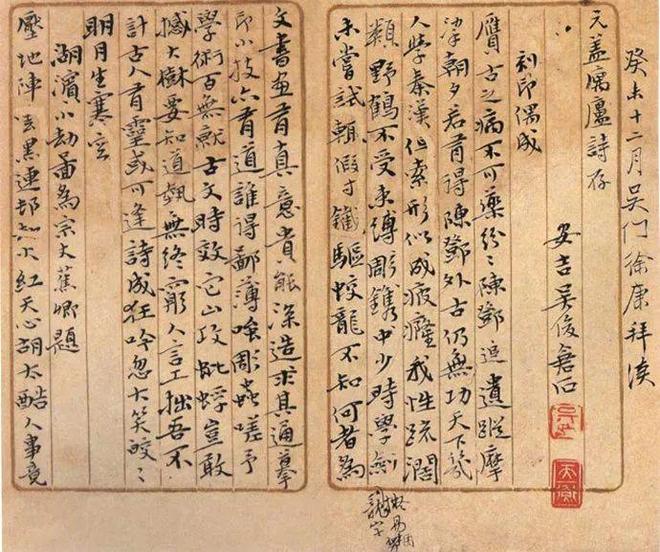 癸未十二月吴门徐康拜讀
元蓋寓廬詩存
安吉吳俊倉石
刻印偶成
贗古之病不可藥紛〻陳鄧追遺蹤摩
挲朝夕若有得陳鄧外古仍無功天下幾
人學秦漢但索形似成疲癃我性疏闊
類野鶴不受束縛彫鐫中少時學劍
未嘗試輒假寸鐵驅蛟龍不知何者為
文書畫有真意貴能深造求其通摹
印小技亦有道誰得鄙薄嗤彫蟲嗟予
學術百無就古文時效它山攻蚍蜉豈敢
撼大樹要知道藝無終窮人言工拙吾不
計古人有靈或可逢詩成狂吟忽大笑皎〻
明月生寒空
湖濱小劫圖為宗丈蕉卿題
壓地陣雲黑連邨劫火紅天心胡太酷人事竟